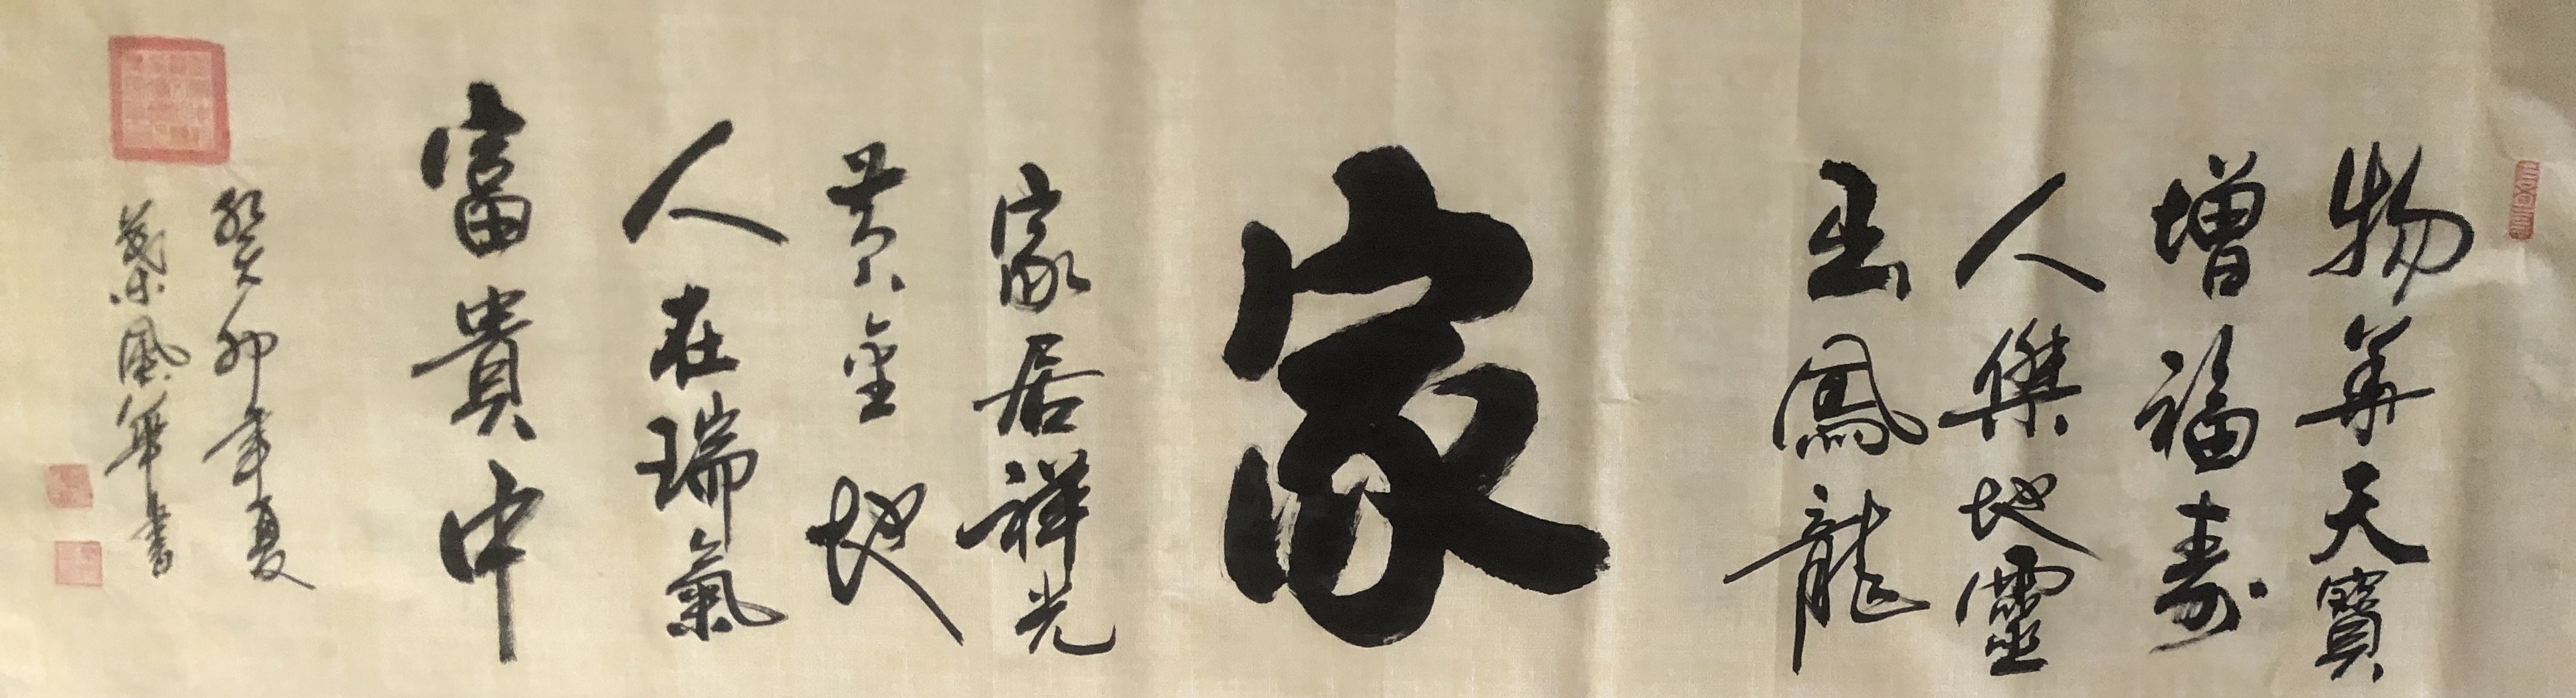 物華天寶
增福壽
人傑地靈
出鳳龍
家
家居祥光
黄金地
人在瑞氣
富貴中
癸卯年夏
葉風華書